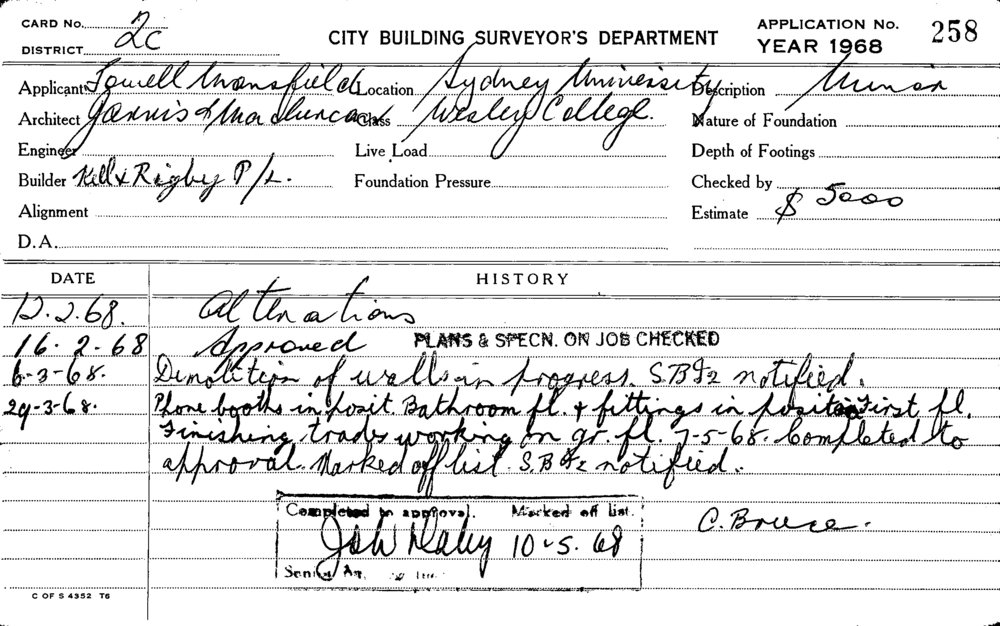 CARD No.
DISTRICT 2c
CITY BUILDING SURVEYOR'S DEPARTMENT
APPLICATION No. 258
YEAR 1968
Applicant Fowell Mansfield Location Sydney University Description Minor
Architect Jarvis & Maclurcan Class Wesley College. Nature of Foundation
Engineer Live Load Depth of Footings
Builder Kell & Rigby P/L. Foundation Pressure Checked by
Alignment Estimate $ 5000
D.A.
DATE HISTORY
12.2.68. Alterations
16.2.68 Approved PLANS & SPECN. ON JOB CHECKED
6-3-68. Demolition of walls in progress. S.B.I2 notified.
29-3-68. Phone booths in posit. Bathroom fl. & fittings in position First fl.
Finishing trades working on gr. fl. 7-5-68. Completed to
approval. Marked off list. S.B.I2 notified.
Completed to approval. Marked off list.
10.5.68
C. Bruce.
C OF S 4352 T6